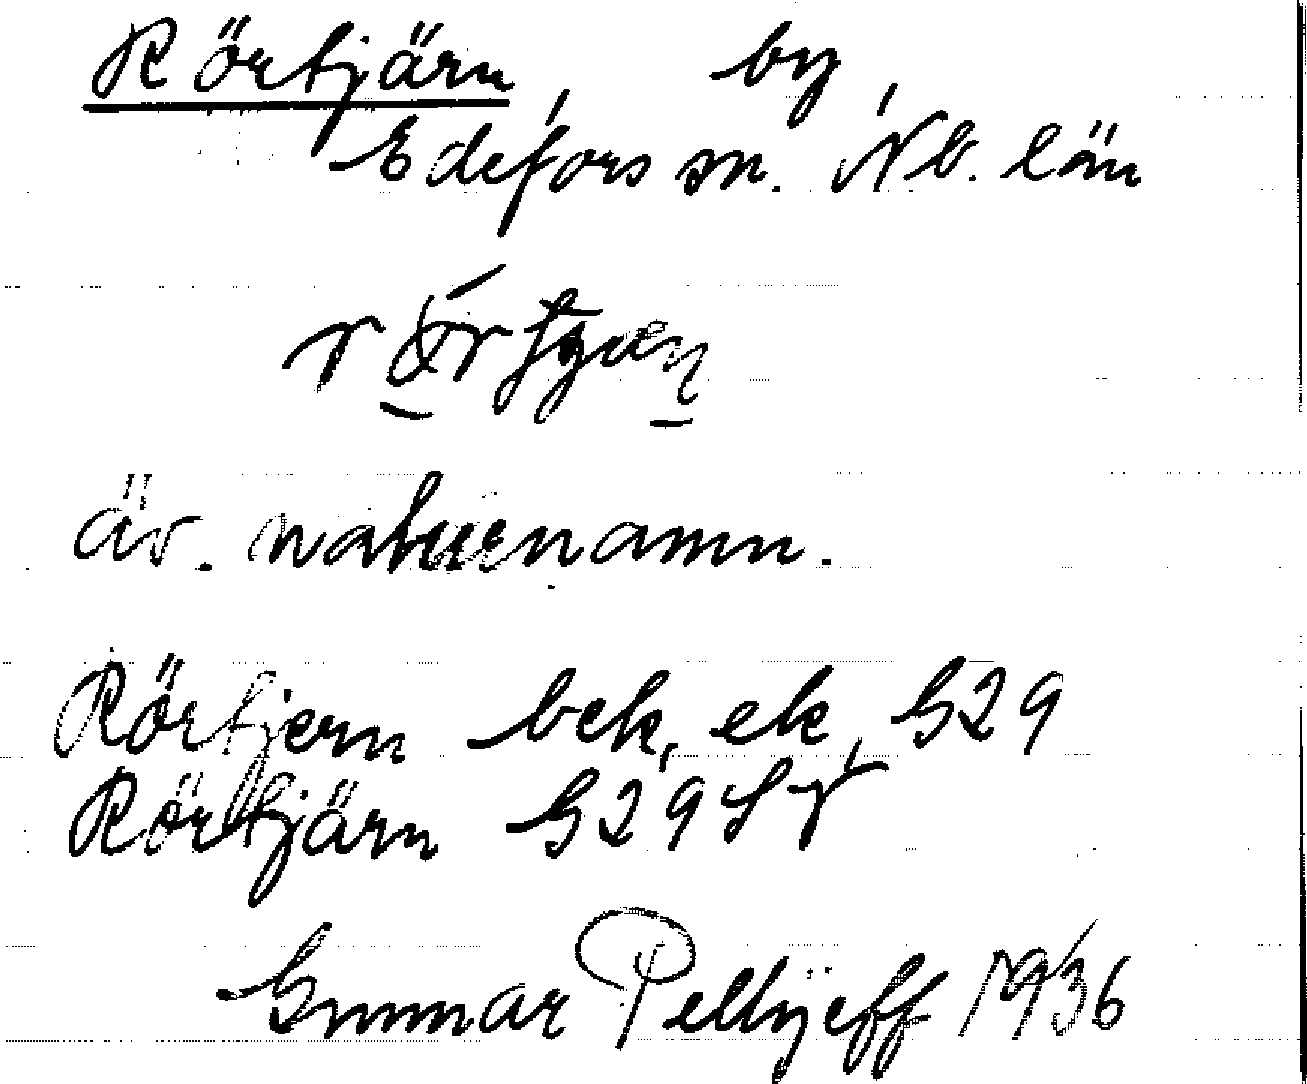 Rörtjärn, by,
Edefors sn. Nb. län
äv. naturnamn.
Rörtjern bek, ek, G29
Rörtjärn G29 SV
Gunnar Pellijeff 1936